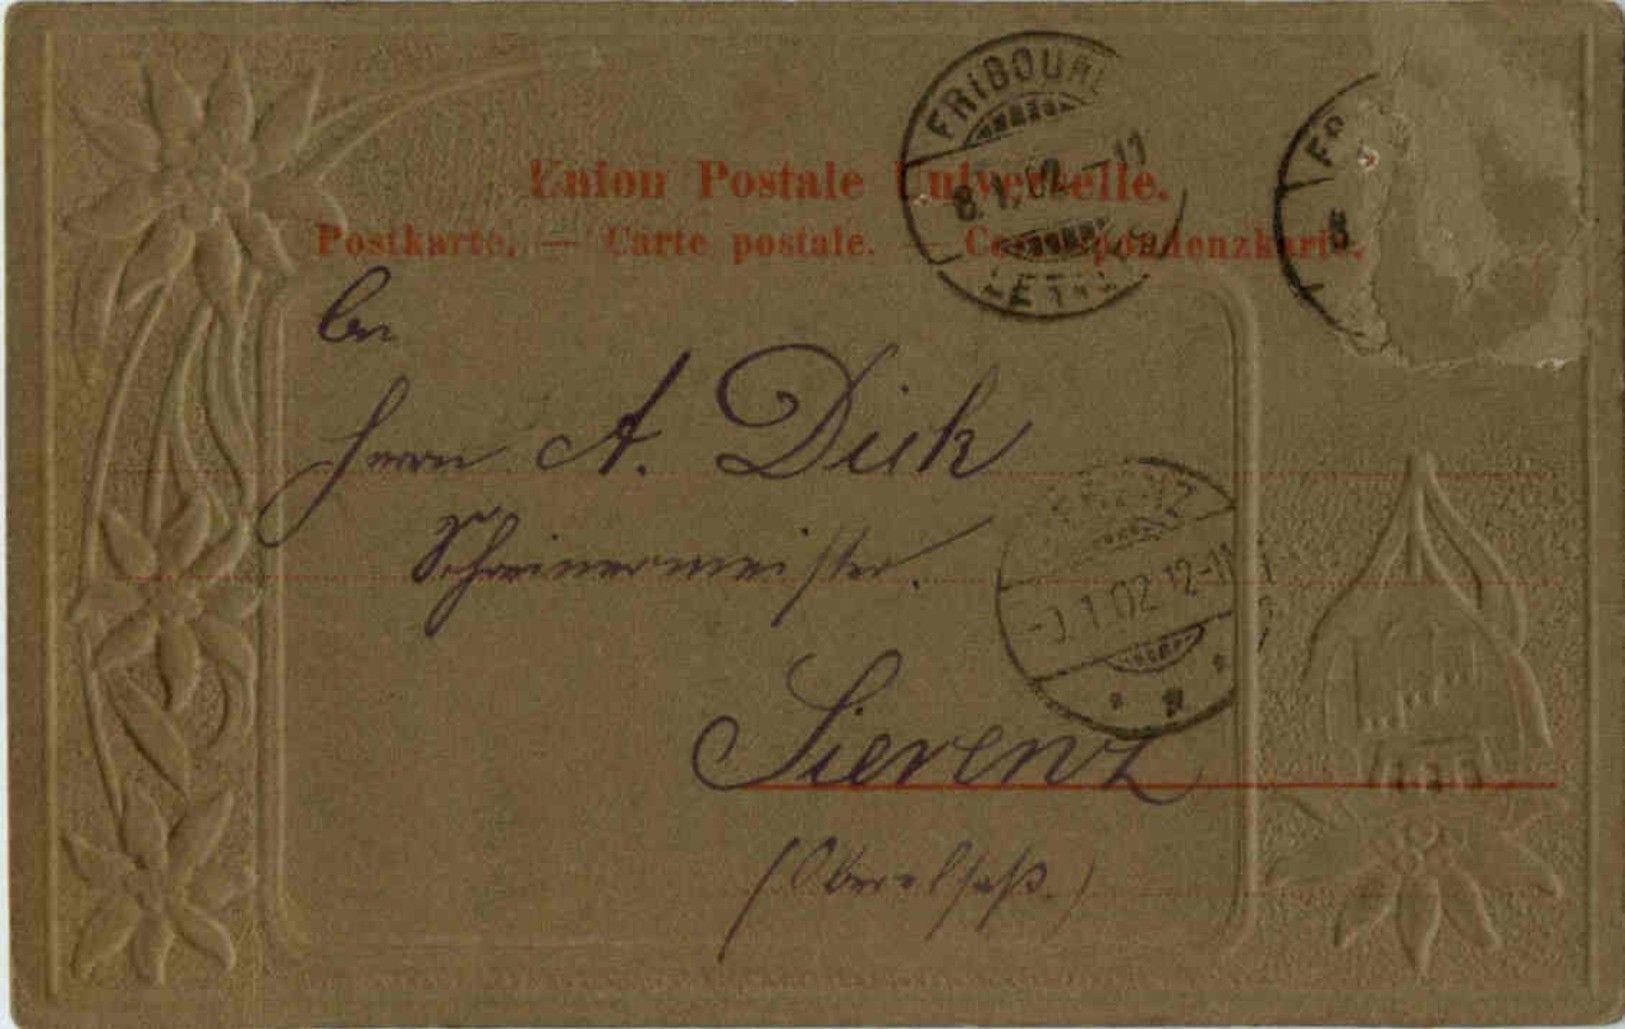 Union Postale Universelle.
Postkarte. — Carte postale. — Correspondenzkarte.
FRIBOURG
8. 1. 02. -11
LETTR
FR
8
An
Herrn A. Dick
Schreinermeister.
1. 02. 12-
Sierenz
(Oberelsaß.)